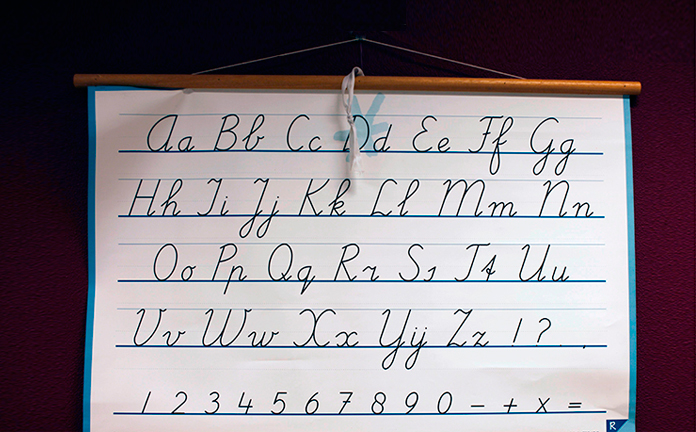 Aa Bb Cc Dd Ee Ff Gg
Hh Ii Jj Kk Ll Mm Nn
Oo Pp Qq Rr Ss Tt Uu
Vv Ww Xx Yy Zz ! ? . ,
1 2 3 4 5 6 7 8 9 0 − + x =
R